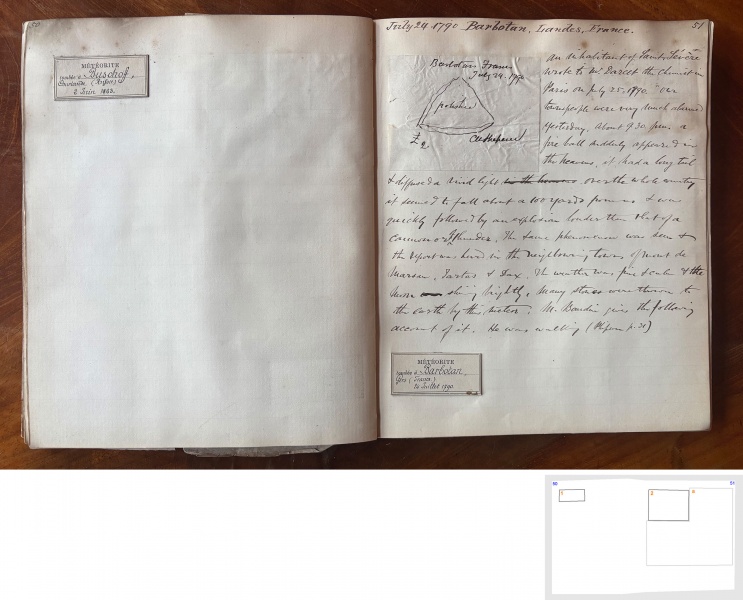 50
MÉTÉORITE
tombée à Buschof,
Courlande, (Russie)
2 Juin 1863.
July 24 1790 Barbotan, Landes, France.
51
Barbotan France
July 24. 1790
polished
£
2
An inhabitant of Saint Sévère
wrote to Mr Darcet the chemist in
Paris on July 25. 1790. "Our
townspeople were very much alarmed
yesterday. About 9.30 p.m. a
fire ball suddenly appeared in
the heavens, it had a long tail
& diffused a vivid light in the heavens over the whole country
it seemed to fall about a 100 yards from us & was
quickly followed by an explosion louder than that of a
cannon or of thunder. The same phenomenon was seen &
the report was heard in the neighbouring towns of Mont de
Marsan, Tartas & Dax. The weather was fine & calm & the
moon shining brightly, Many stones were thrown to
the earth by this meteor. M. Baudin gives the following
account of it. He was walking ( p. 31)
MÉTÉORITE
tombée à Barbotan,
Gers (France)
24 Juillet 1790.
50
51
1
2
a